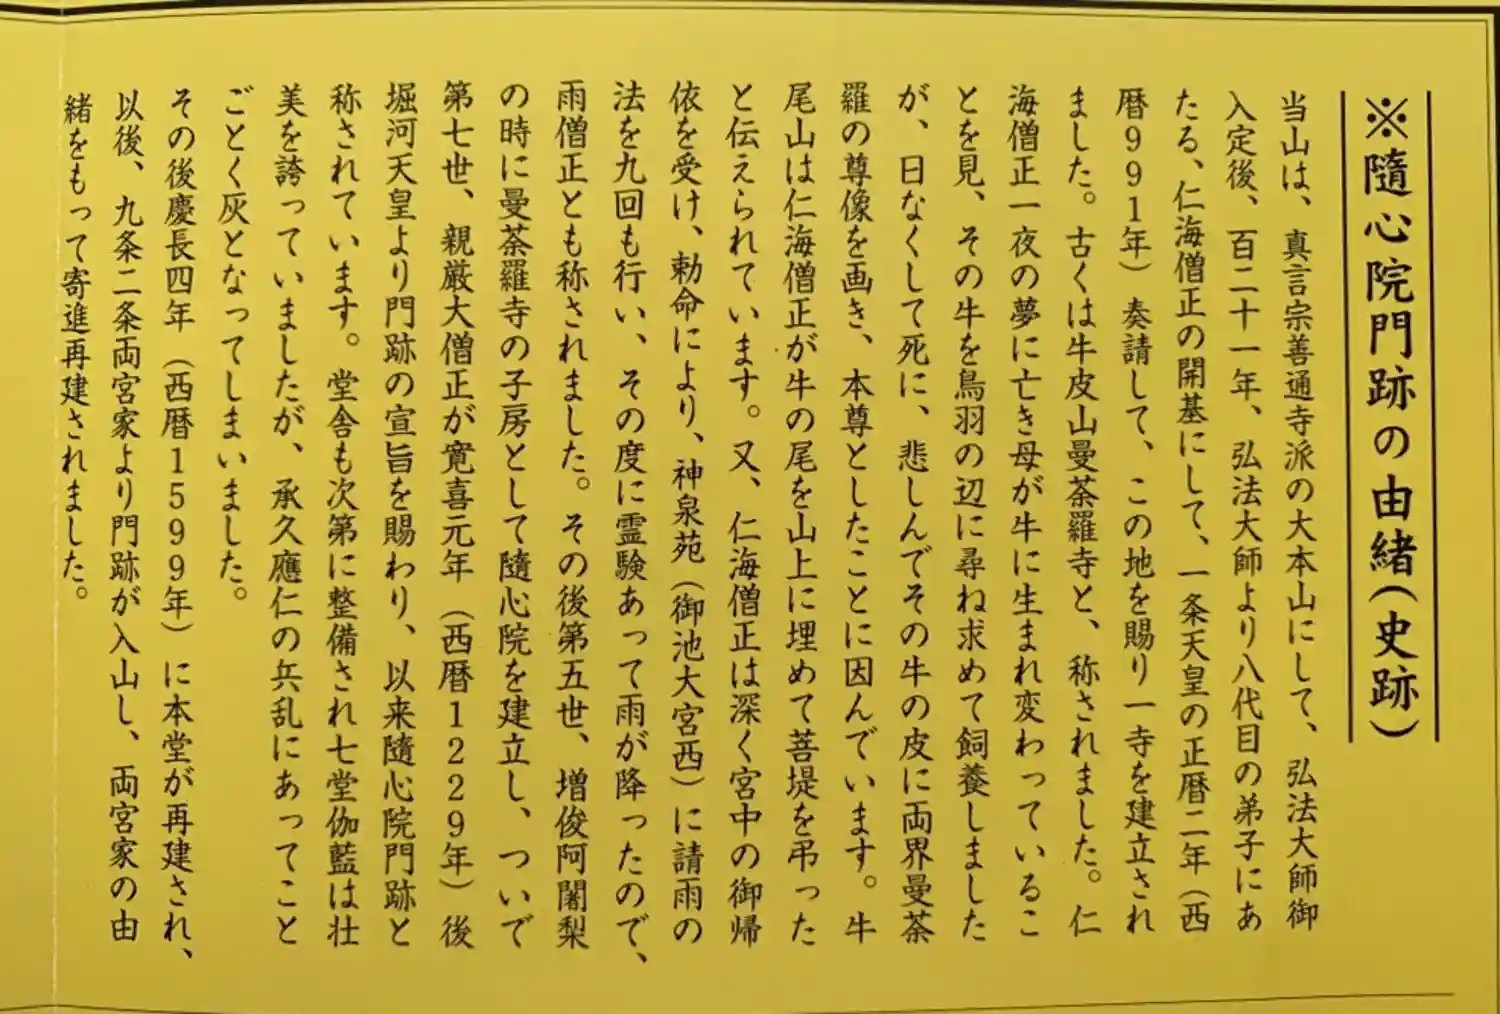 ※隨心院門跡の由緒(史跡)
当山は、真言宗善通寺派の大本山にして、弘法大師御
入定後、百二十一年、弘法大師より八代目の弟子にあ
たる、仁海僧正の開基にして、一条天皇の正暦二年(西
暦991年)奏請して、この地を賜り一寺を建立され
ました。古くは牛皮山曼荼羅寺と、称されました。仁
海僧正一夜の夢に亡き母が牛に生まれ変わっているこ
とを見、その牛を鳥羽の辺に尋ね求めて飼養しました
が、日なくして死に、悲しんでその牛の皮に両界曼荼
羅の尊像を画き、本尊としたことに因んでいます。牛
尾山は仁海僧正が牛の尾を山上に埋めて菩堤を弔った
と伝えられています。又、仁海僧正は深く宮中の御帰
依を受け、勅命により、神泉苑(御池大宮西)に請雨の
法を九回も行い、その度に霊験あって雨が降ったので、
雨僧正とも称されました。その後第五世、増俊阿闍梨
の時に曼荼羅寺の子房として隨心院を建立し、ついで
第七世、親厳大僧正が寛喜元年(西暦1229年)後
堀河天皇より門跡の宣旨を賜わり、以来隨心院門跡と
称されています。堂舎も次第に整備され七堂伽藍は壮
美を誇っていましたが、承久應仁の兵乱にあってこと
ごとく灰となってしまいました。
その後慶長四年(西暦1599年)に本堂が再建され、
以後、九条二条両宮家より門跡が入山し、両宮家の由
緒をもって寄進再建されました。